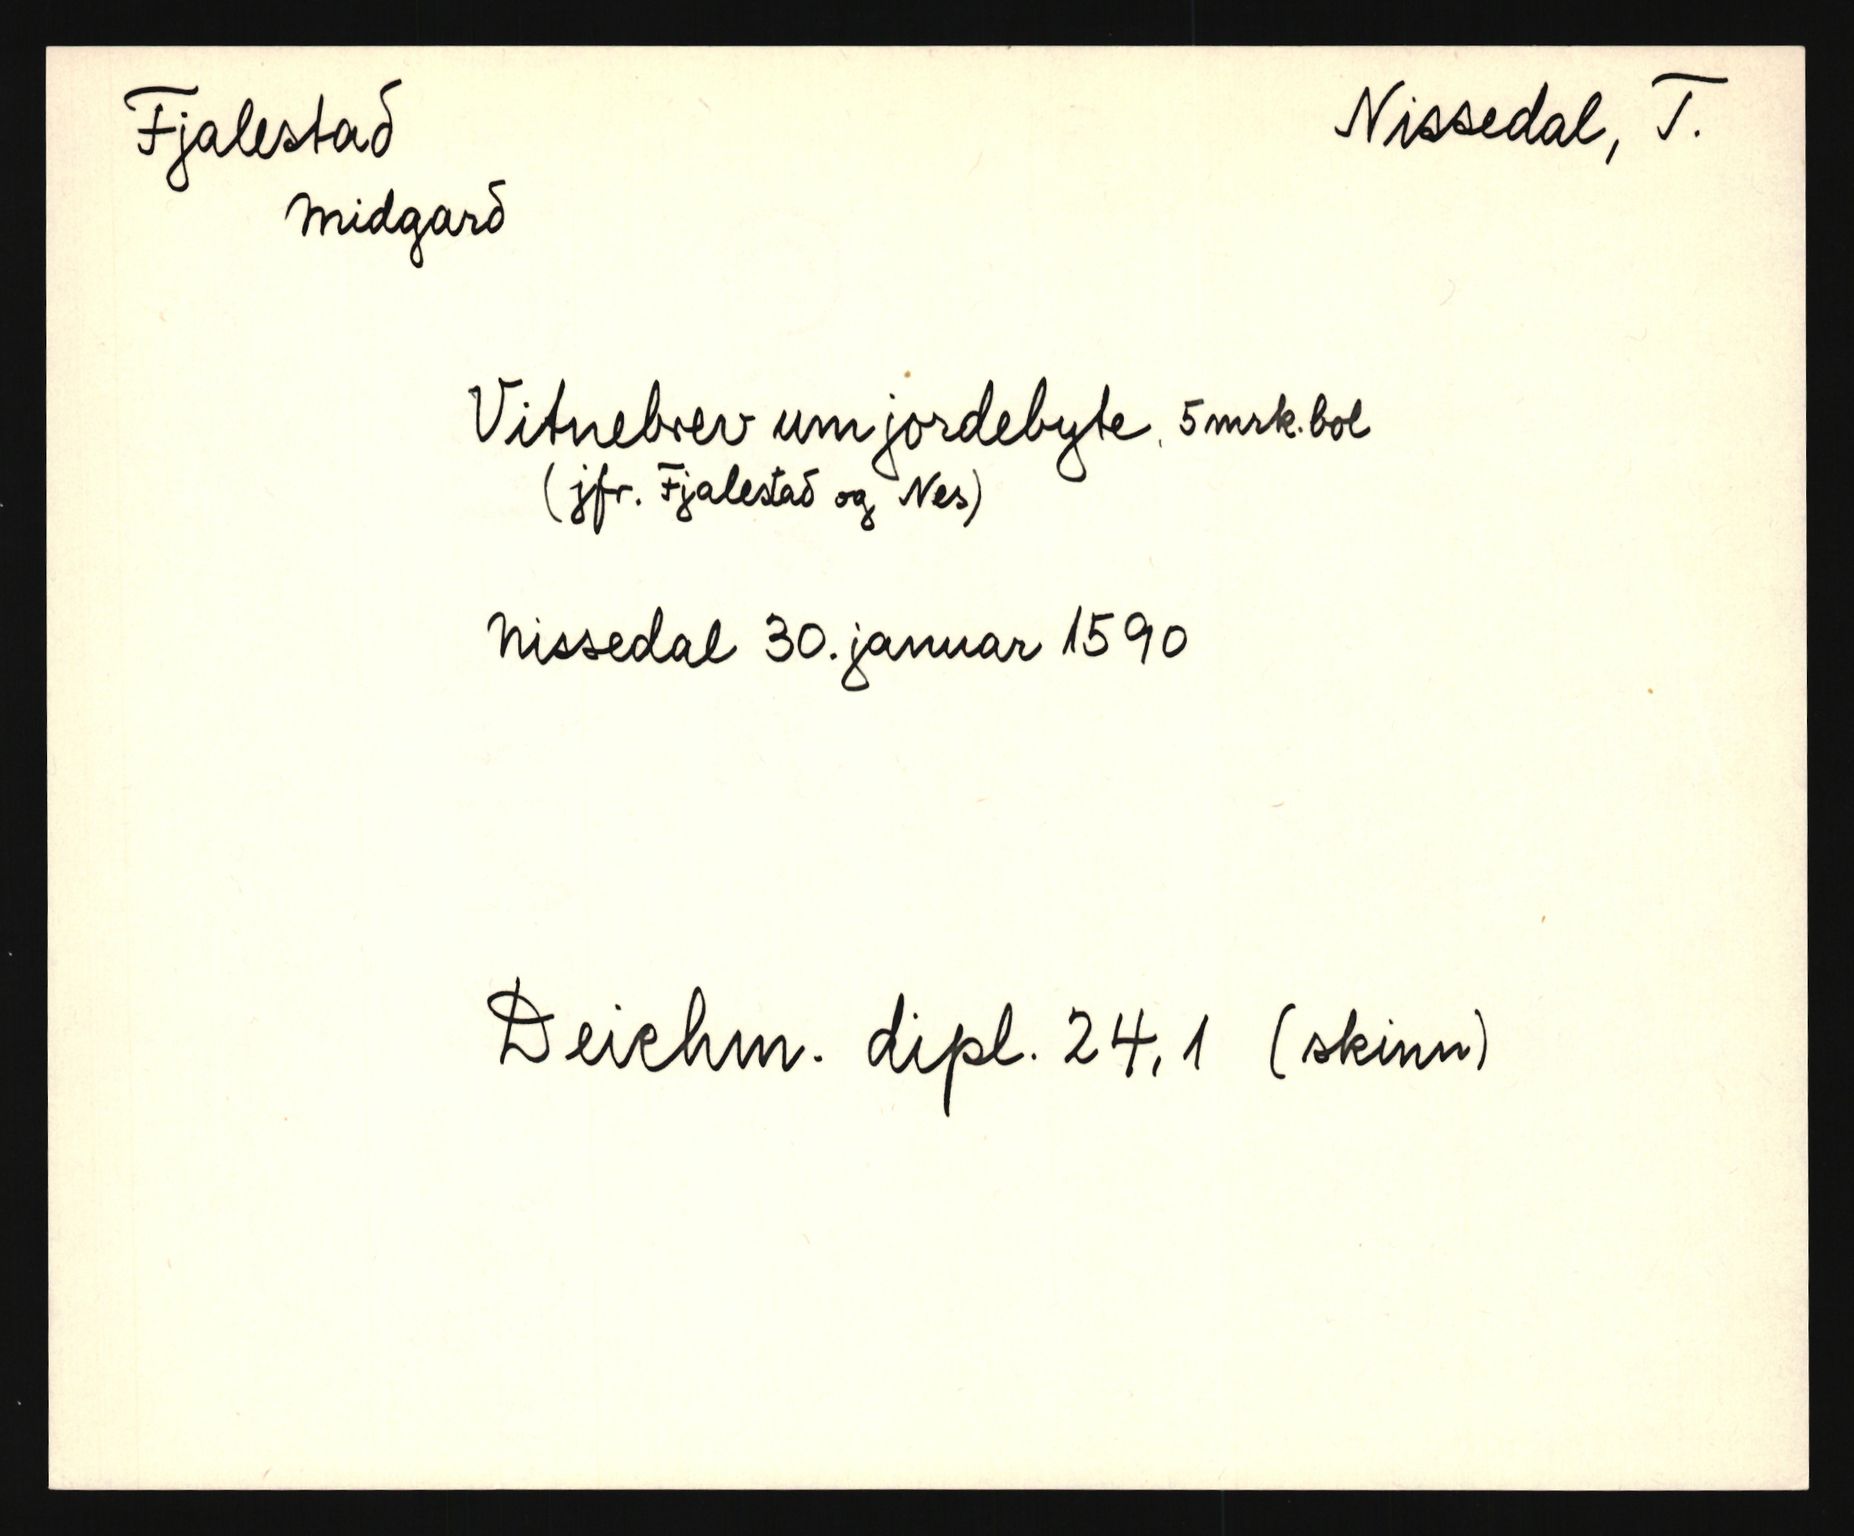 Fjalestad
Nissedal, T.
midgard
Vitnebrev um jordebyte, 5 mrk. bol
(jfr. Fjalestad og Nes)
Nissedal 30. januar 1590
Deichm. dipl. 24,1 (skinn)